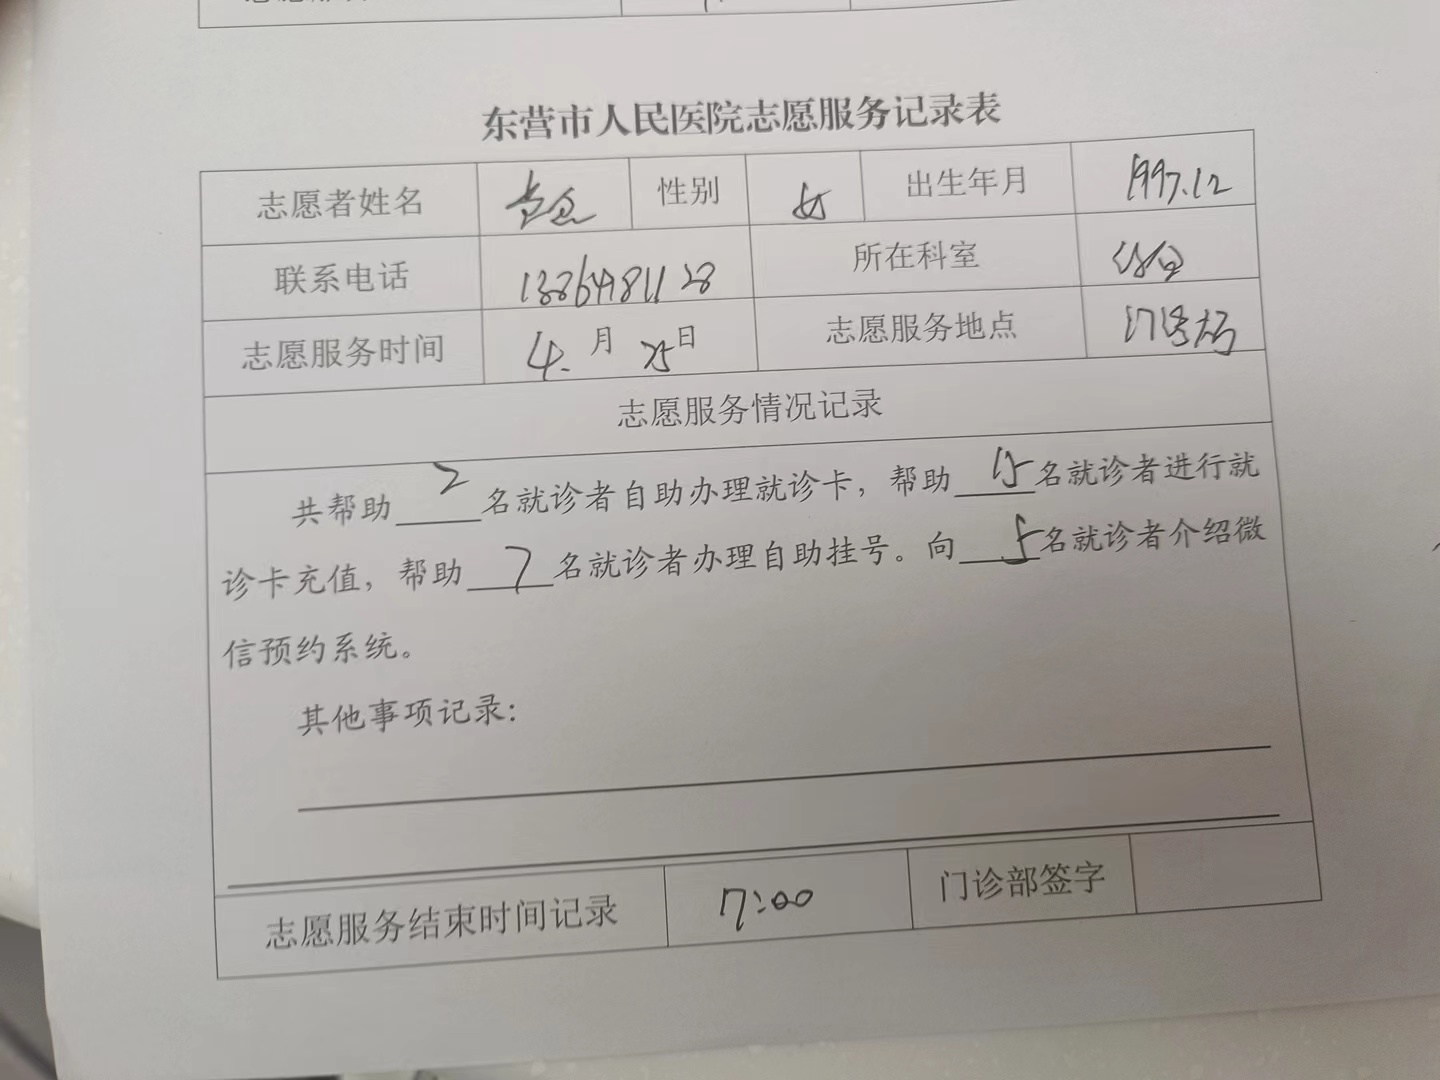 东营市人民医院志愿服务记录表
志愿者姓名 性别 女 出生年月 1997.12
联系电话 13864981128 所在科室
志愿服务时间 4.月25日 志愿服务地点 门诊大厅
志愿服务情况记录
共帮助2名就诊者自助办理就诊卡，帮助15名就诊者进行就
诊卡充值，帮助7名就诊者办理自助挂号。向5名就诊者介绍微
信预约系统。
其他事项记录：
志愿服务结束时间记录 17:00 门诊部签字